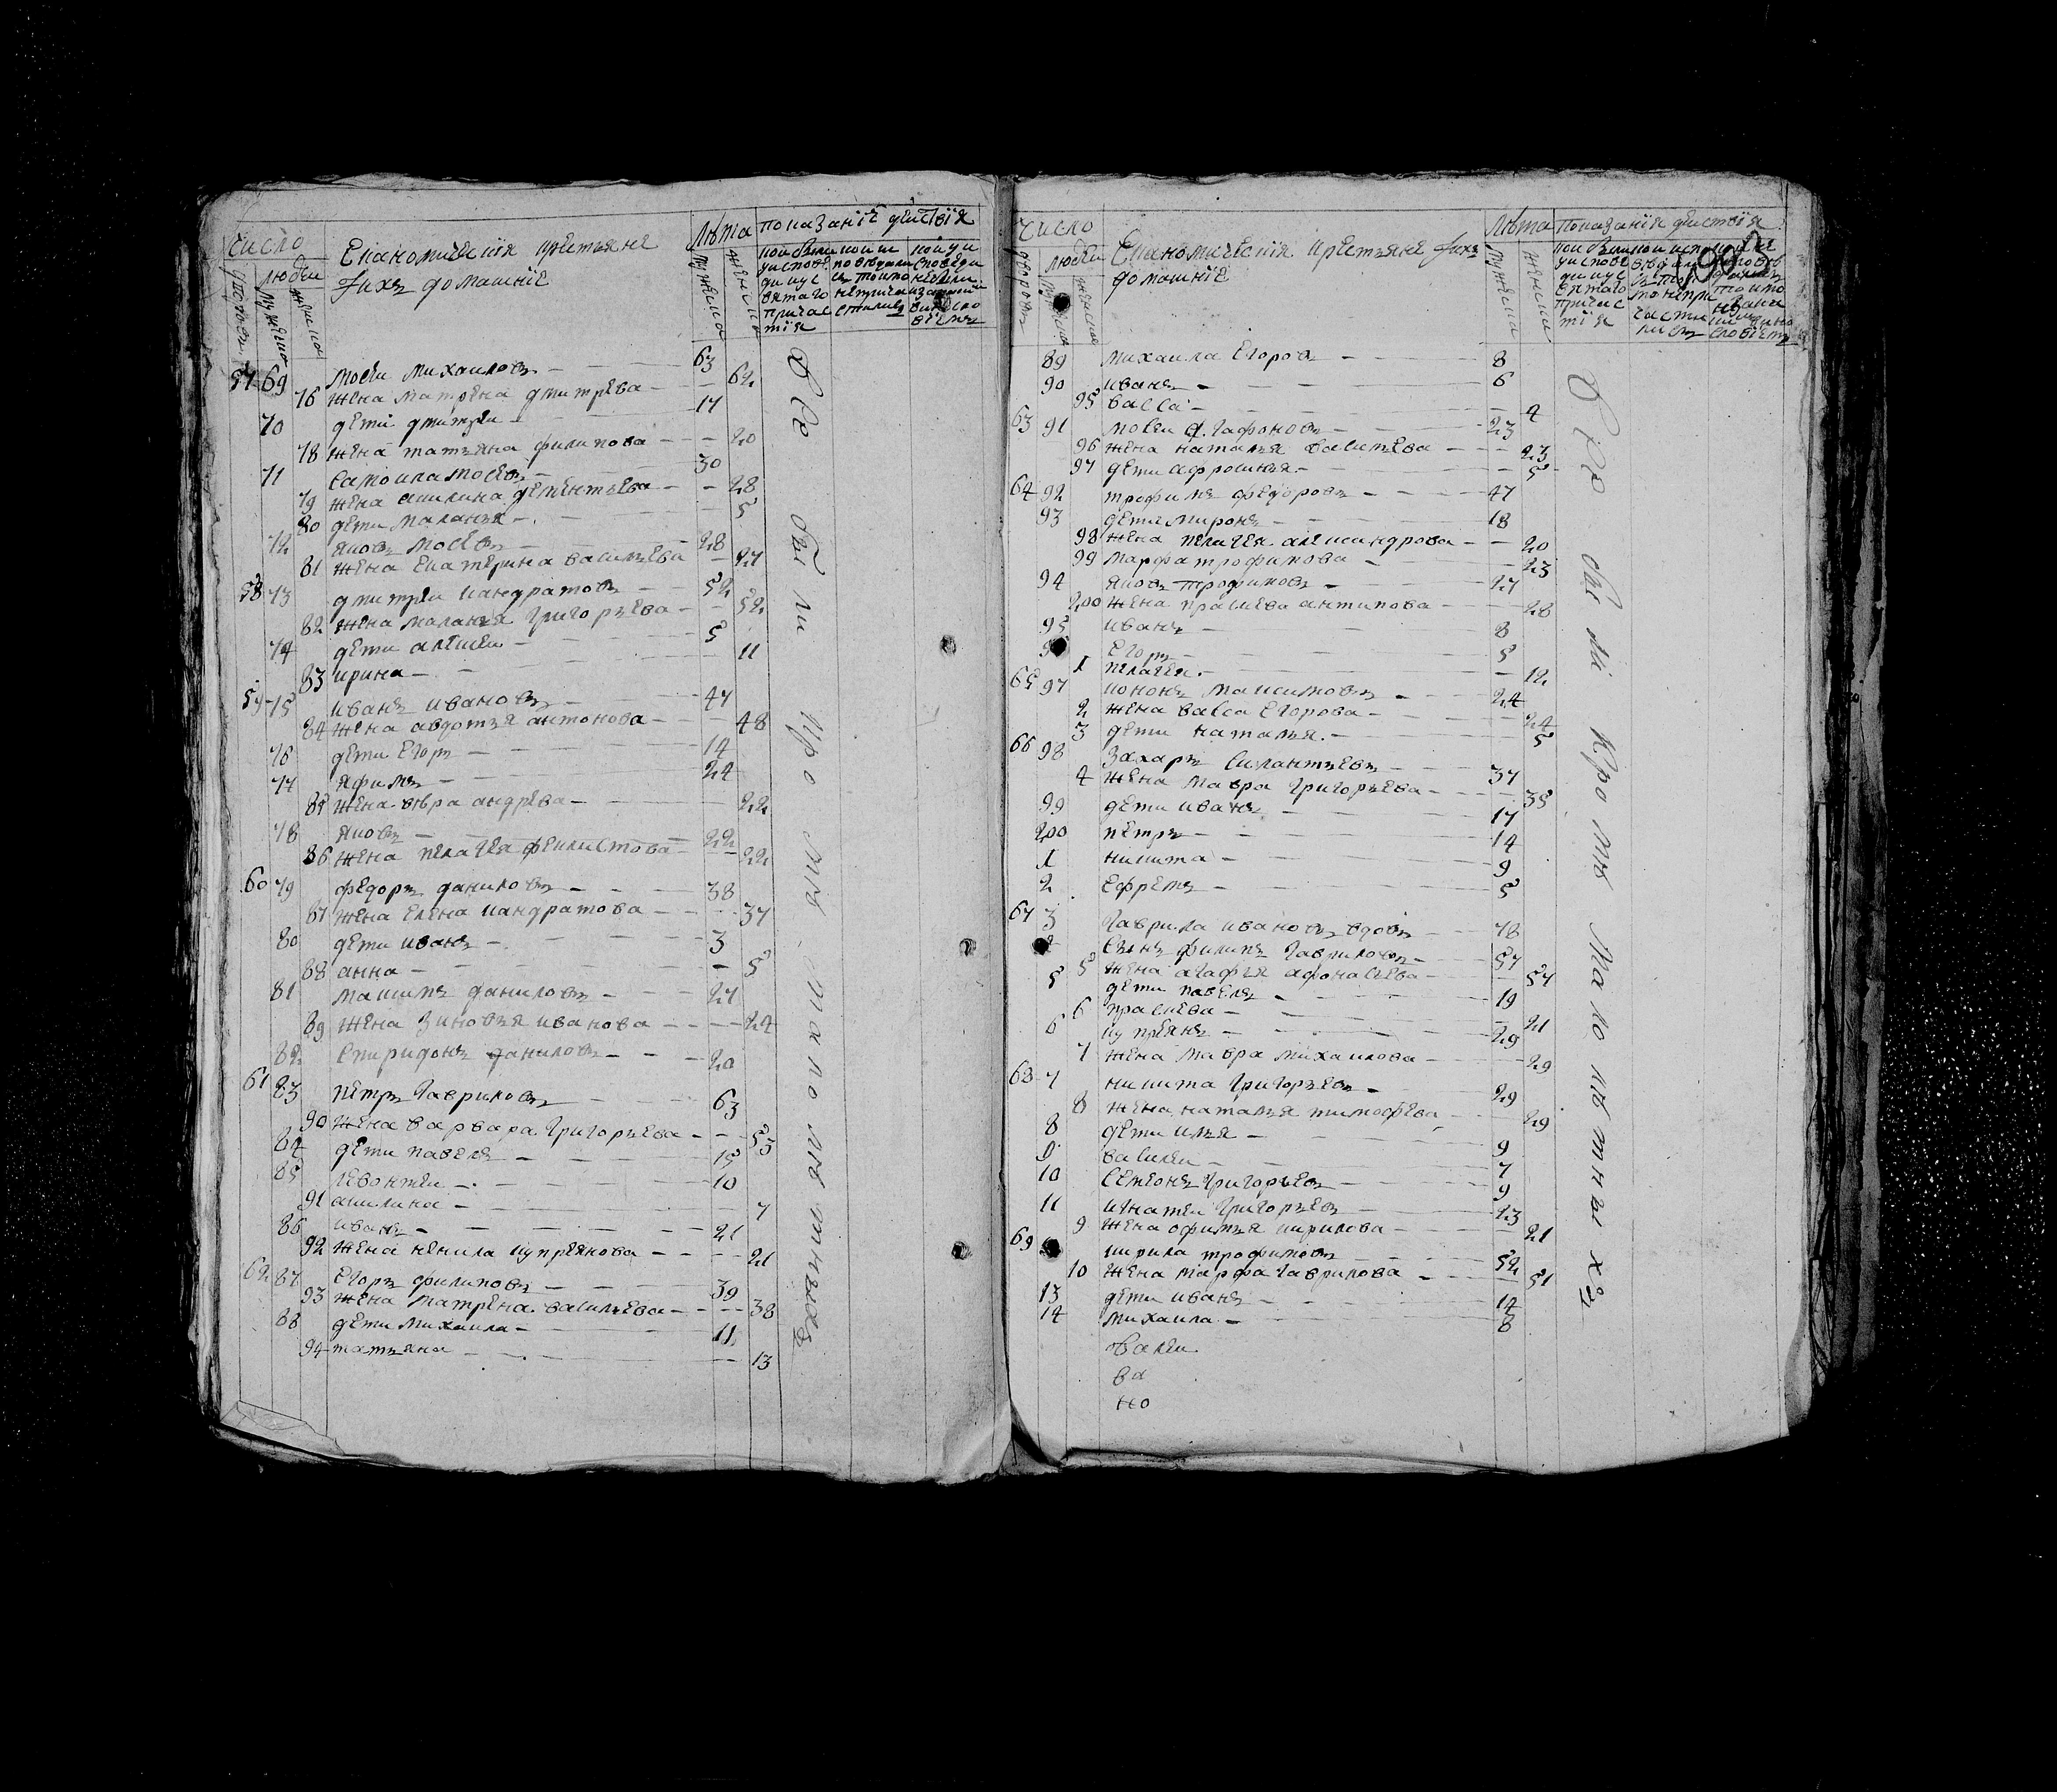 Число
Люди
Економическия крестьяне
и ихъ домашние
Лѣта
показание действия
57 69 Мосеи Михаиловъ 63
76 жена Матрена Дмитрева 62
70 дети Дмитреи 17
78 жена Татьяна Филипова 20
71 Самоила Мосеевъ 30
79 жена Акилина Дементьева 28
80 дети Маланья 5
72 Яковъ Мосеевъ 28
81 жена Екатерина Васильева 27
58 73 Дмитреи Кандратовъ 52
82 жена Маланья Григорьева 52
74 дети Алексеи 5
83 Ирина 11
59 75 Иванъ Ивановъ 47
84 жена Авдотья Антонова 48
76 дети Егоръ 14
77 Яфимъ 24
85 жена Вѣра Андрева 22
78 Яковъ 22
86 жена Пелагея Феклистова 22
60 79 Федоръ Даниловъ 38
87 жена Елена Кандратова 37
80 дети Иванъ 3
88 Анна 5
81 Максимъ Даниловъ 27
89 жена Зиновья Иванова 24
82 Спиридонъ Даниловъ 20
61 83 Петръ Гавриловъ 63
90 жена Варвара Григорьева 53
84 дети Павелъ 15
85 Левонтеи 10
91 Акилина 7
86 Иванъ 21
92 жена Ненила Купреянова 21
62 87 Егоръ Филиповъ 39
93 жена Матрена Васильева 38
88 дети Михаила 11
94 Татьяна 13
Все были кроме малолетнихъ
Число
Люди
Економическия крестьяне и ихъ
домашние
Лѣта
показания действия
89 Михаила Егоровъ 8
90 Иванъ 6
95 Васса 4
63 91 Мосеи Агафоновъ 23
96 жена Наталья Васильева 23
97 дети Афросинья 5
64 92 Трофимъ Федоровъ 47
93 дети Миронъ 18
98 жена Пелагея Александрова 20
99 Марфа Трофимова 23
94 Яковъ Трофимовъ 27
200 жена Прасковя Антипова 28
95 Иванъ 8
Егоръ 5
1 Пелагея 12
65 97 Кононъ Максимовъ 24
2 жена Васса Егорова 24
3 дети Наталья 5
66 98 Захаръ Силантьевъ 37
4 жена Мавра Григорьева 35
99 дети Иванъ 17
200 Петръ 14
1 Никита 9
2 Ефремъ 5
67 3 Гаврила Ивановъ вдовъ 78
Сынъ Филипъ Гавриловъ 57
5 жена Агафья Афонасьева 57
5 дети Павелъ 19
6 Праскева 21
6 Купреянъ 29
7 жена Мавра Михаилова 29
68 7 Никита Григорьевъ 29
8 жена Наталья Тимофева 29
8 дети Илья 9
9 Василеи 7
10 Семенъ Григорьевъ 9
11 Игнатеи Григорьевъ 23
9 жена Офимья Кирилова 21
69 Кирила Трофимовъ 52
10 жена Марфа Гаврилова 51
13 дети Иванъ 14
14 Михаила 8
Все были кроме малолетныхъ